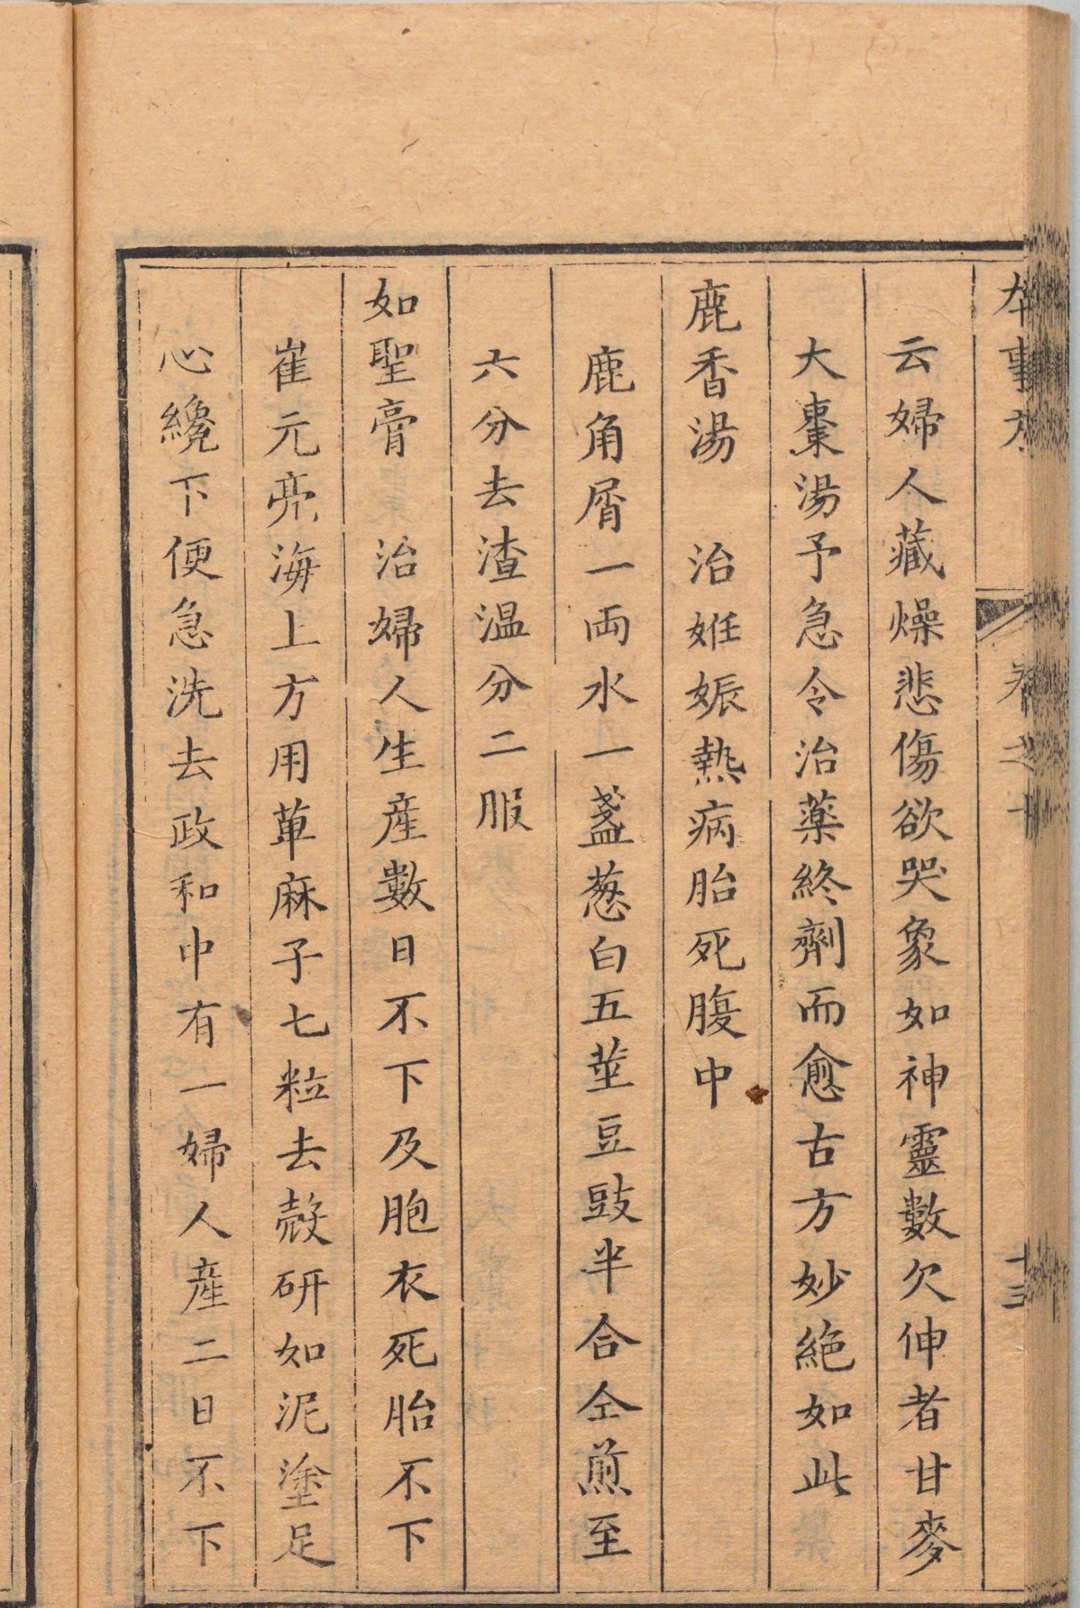 本事方 卷之十 十三
云婦人藏燥悲傷欲哭象如神靈數欠伸者甘麥
大棗湯予急令治藥終劑而愈古方妙絶如此
鹿香湯 治姙娠熱病胎死腹中
鹿角屑一両水一盞葱白五莖豆豉半合仝煎至
六分去渣温分二服
如聖膏 治婦人生産數日不下及胞衣死胎不下
崔元亮海上方用萆麻子七粒去殻研如泥塗足
心纔下便急洗去政和中有一婦人産二日不下